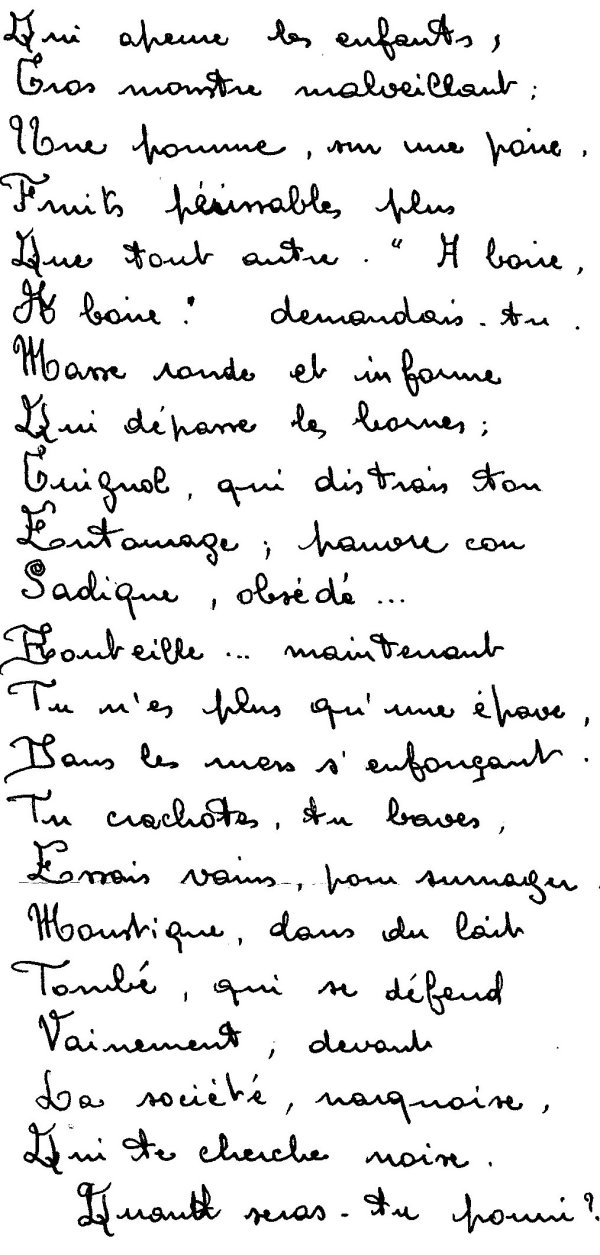 Qui apeure les enfants,
Gros monstre malveillant ;
Une pomme, sur une poire,
Fruits périssables plus
Que tout autre. " A boire,
A boire " demandais-tu.
Masse ronde et informe
Qui dépasse les bornes ;
Guignol, qui distrais ton
Entourage ; pauvre con
Sadique, obsédé ...
Bouteille ... maintenant
Tu n'es plus qu'une épave,
Dans les mers s'enfonçant.
Tu crachotes, tu baves,
Essais vains, pour surnager.
Moustique, dans du lait
Tombé, qui se défend
Vainement, devant
La société, narquoise,
Qui te cherche noise.
Quand seras-tu pourri ?